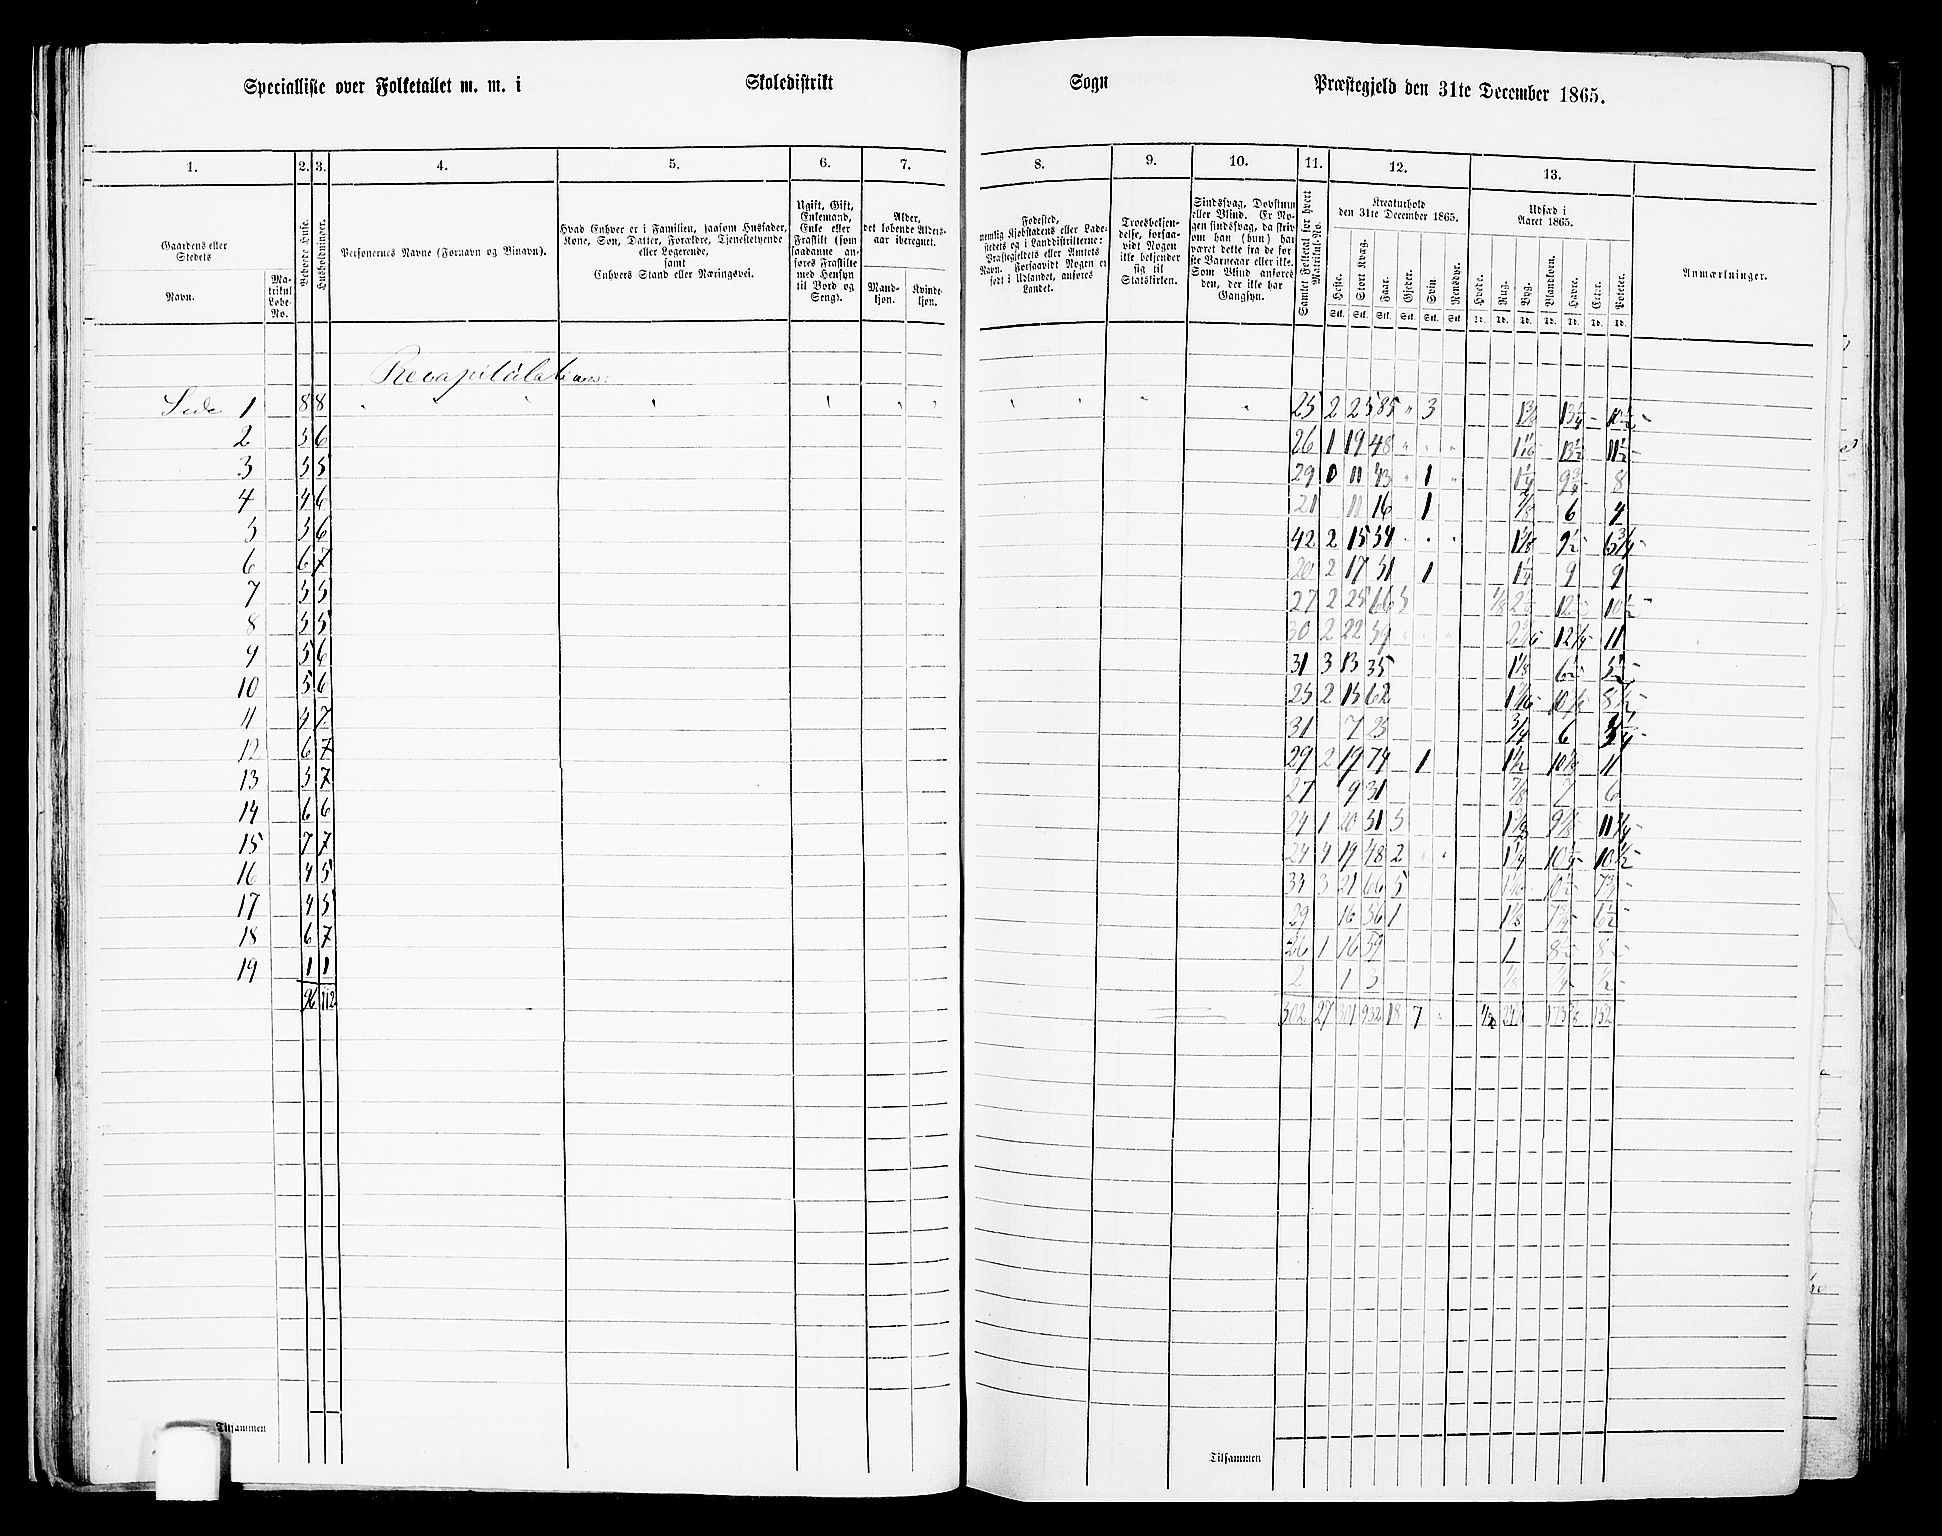 Specialliste over Folketallet m. m. i Skoledistrikt Sogn Præstegjeld den 31te December 1865.
1. 2. 3. 4. 5. 6. 7. 8. 9. 10. 11. 12. 13.
Gaardens eller Stedets
Navn.
Matrikul Løbe-No.
Beboede Huse.
Husholdninger.
Personernes Navne (Fornavn og Binavn).
Hvad Enhver er i Familien, saasom Husfader,
Kone, Søn, Datter, Forældre, Tjenestetyende
eller Logerende,
samt
Enhvers Stand eller Næringsvei.
Ugift, Gift,
Enkemand,
Enke eller
Fraskilt (som
saadanne an-
føres Fraskilte
med Hensyn
til Bord og
Seng).
Alder,
det løbende Alders-
aar iberegnet.
Mand-
kjøn.
Kvinde-
kjøn.
Fødested,
nemlig Kjøbstadens eller Lade-
stedets og i Landdistrikterne:
Præstegjeldets eller Amtets
Navn. Forsaavidt Nogen er
født i Udlandet, anføres
Landet.
Troesbekjen-
delse, forsaa-
vidt Nogen
ikke bekjender
sig til
Statskirken.
Sindssvag, Døvstum
eller Blind. Er No-
gen sindssvag, da skriv
om han (hun) har
været dette fra de før-
ste Barneaar eller ikke.
Som Blind anføres
den, der ikke har
Gangsyn.
Samlet Folketal for hvert
Matrikul-No.
Kreaturhold
den 31te December 1865.
Heste. Stort Kvæg. Faar. Gjeder. Svin. Rensdyr.
Stk. Stk. Stk. Stk. Stk. Stk.
Udsæd i
Aaret 1865.
Hvede. Rug. Byg. Blandkorn. Havre. Erter. Poteter.
Td. Td. Td. Td. Td. Td. Td.
Anmærkninger.
Recapitulation:
Side 1 8 8 " " " " " " " " " 25 2 25 85 " 3 1 3/8 13 1/4 10 1/2
2 5 6 26 1 19 48 " " " 13 1/2 11 1/2
3 5 5 29 0 11 43 " 1 " 1 1/4 9 3/4 8
4 4 6 21 11 16 1 7/8 6 4
5 5 6 42 2 15 54 9 1/2
6 6 7 20 2 17 51 1 1 1/4 9 9
7 5 5 27 2 25 66 5 1/8 12 1/2 10 1/2
8 5 5 30 2 22 59 12 1/4 11
9 5 6 31 3 13 35 1 1/8 6 1/2 5 1/2
10 5 6 25 2 15 62 8 1/2
11 4 7 31 7 25 3/4 6
12 6 7 29 2 19 74 1 1 1/2 10 1/8 11
13 5 7 27 9 31 7/8 7 6
14 6 6 24 1 20 51 5 9 1/8 11 1/4
15 7 7 24 4 19 48 2 " " 1 1/4 10 1/4 10 1/2
16 4 5 33 3 21 66 5 10 1/2
17 4 5 29 16 56 1 1 1/8 7 3/4 6 1/2
18 6 7 26 1 16 59 1 8 1/2
19 1 1 2 1 3 1/8 1/4 1/2
96 112 502 27 301 932 18 7 " 152
Tilsammen
Tilsammen